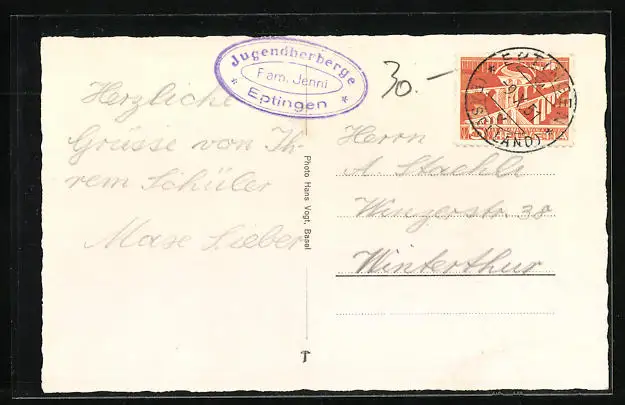 Jugendherberge
* Fam. Jenni *
Eptingen
30.–
Herzliche
Grüsse von Ih-
rem Schüler
Max Lieber
Photo Hans Vogt, Basel
EPTINGEN
(BSELLAND)
Herrn
A. Stachli
Wingerstr. 38
Winterthur